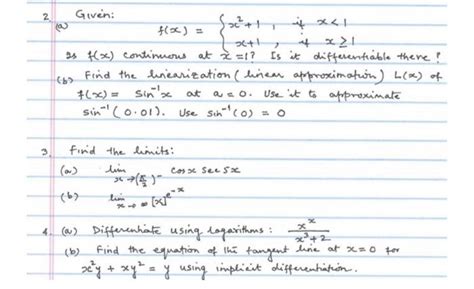 2. Given:
(a) f(x) = { x²+1 , if x<1
x+1 , if x≥1
Is f(x) continuous at x=1? Is it differentiable there?
(b) Find the linearization (linear approximation) L(x) of
f(x) = Sin⁻¹x at a=0. Use it to approximate
sin⁻¹(0.01). Use sin⁻¹(0) = 0
3. Find the limits:
(a) lim x→(π/2)⁻ cosx sec5x
(b) lim x→∞ [x]^e^-x
4. (a) Differentiate using logarithms: x^x / x³+2
(b) Find the equation of the tangent line at x=0 for
x²y + xy² = y using implicit differentiation.